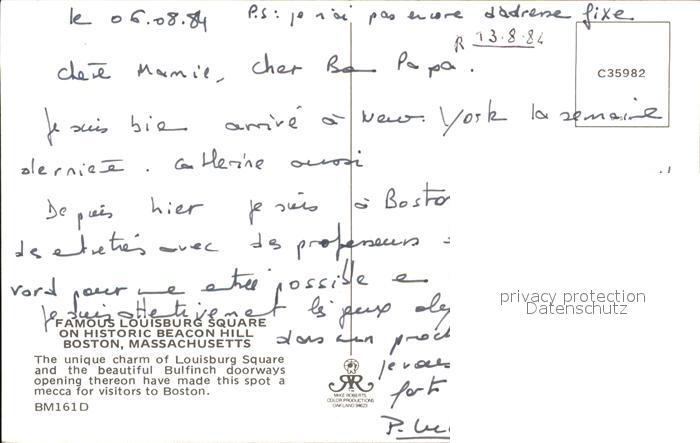 le 06.08.84 P.S: je n'ai pas encore d'adresse fixe
R 13.8.84
C35982
Chère Mamie, cher Bon Papa.
Je suis bien arrivé à New York la semaine
dernière. Catherine aussi
Depuis hier je suis à Bosto
des entretiens avec des professeurs
vard pour une entrée possible en
je suis attentivement les jeux oly
dans un proch
je vous
forts
P.
privacy protection
Datenschutz
FAMOUS LOUISBURG SQUARE
ON HISTORIC BEACON HILL
BOSTON, MASSACHUSETTS
The unique charm of Louisburg Square
and the beautiful Bulfinch doorways
opening thereon have made this spot a
mecca for visitors to Boston.
BM161D
MIKE ROBERTS
COLOR PRODUCTIONS
OAKLAND 94623